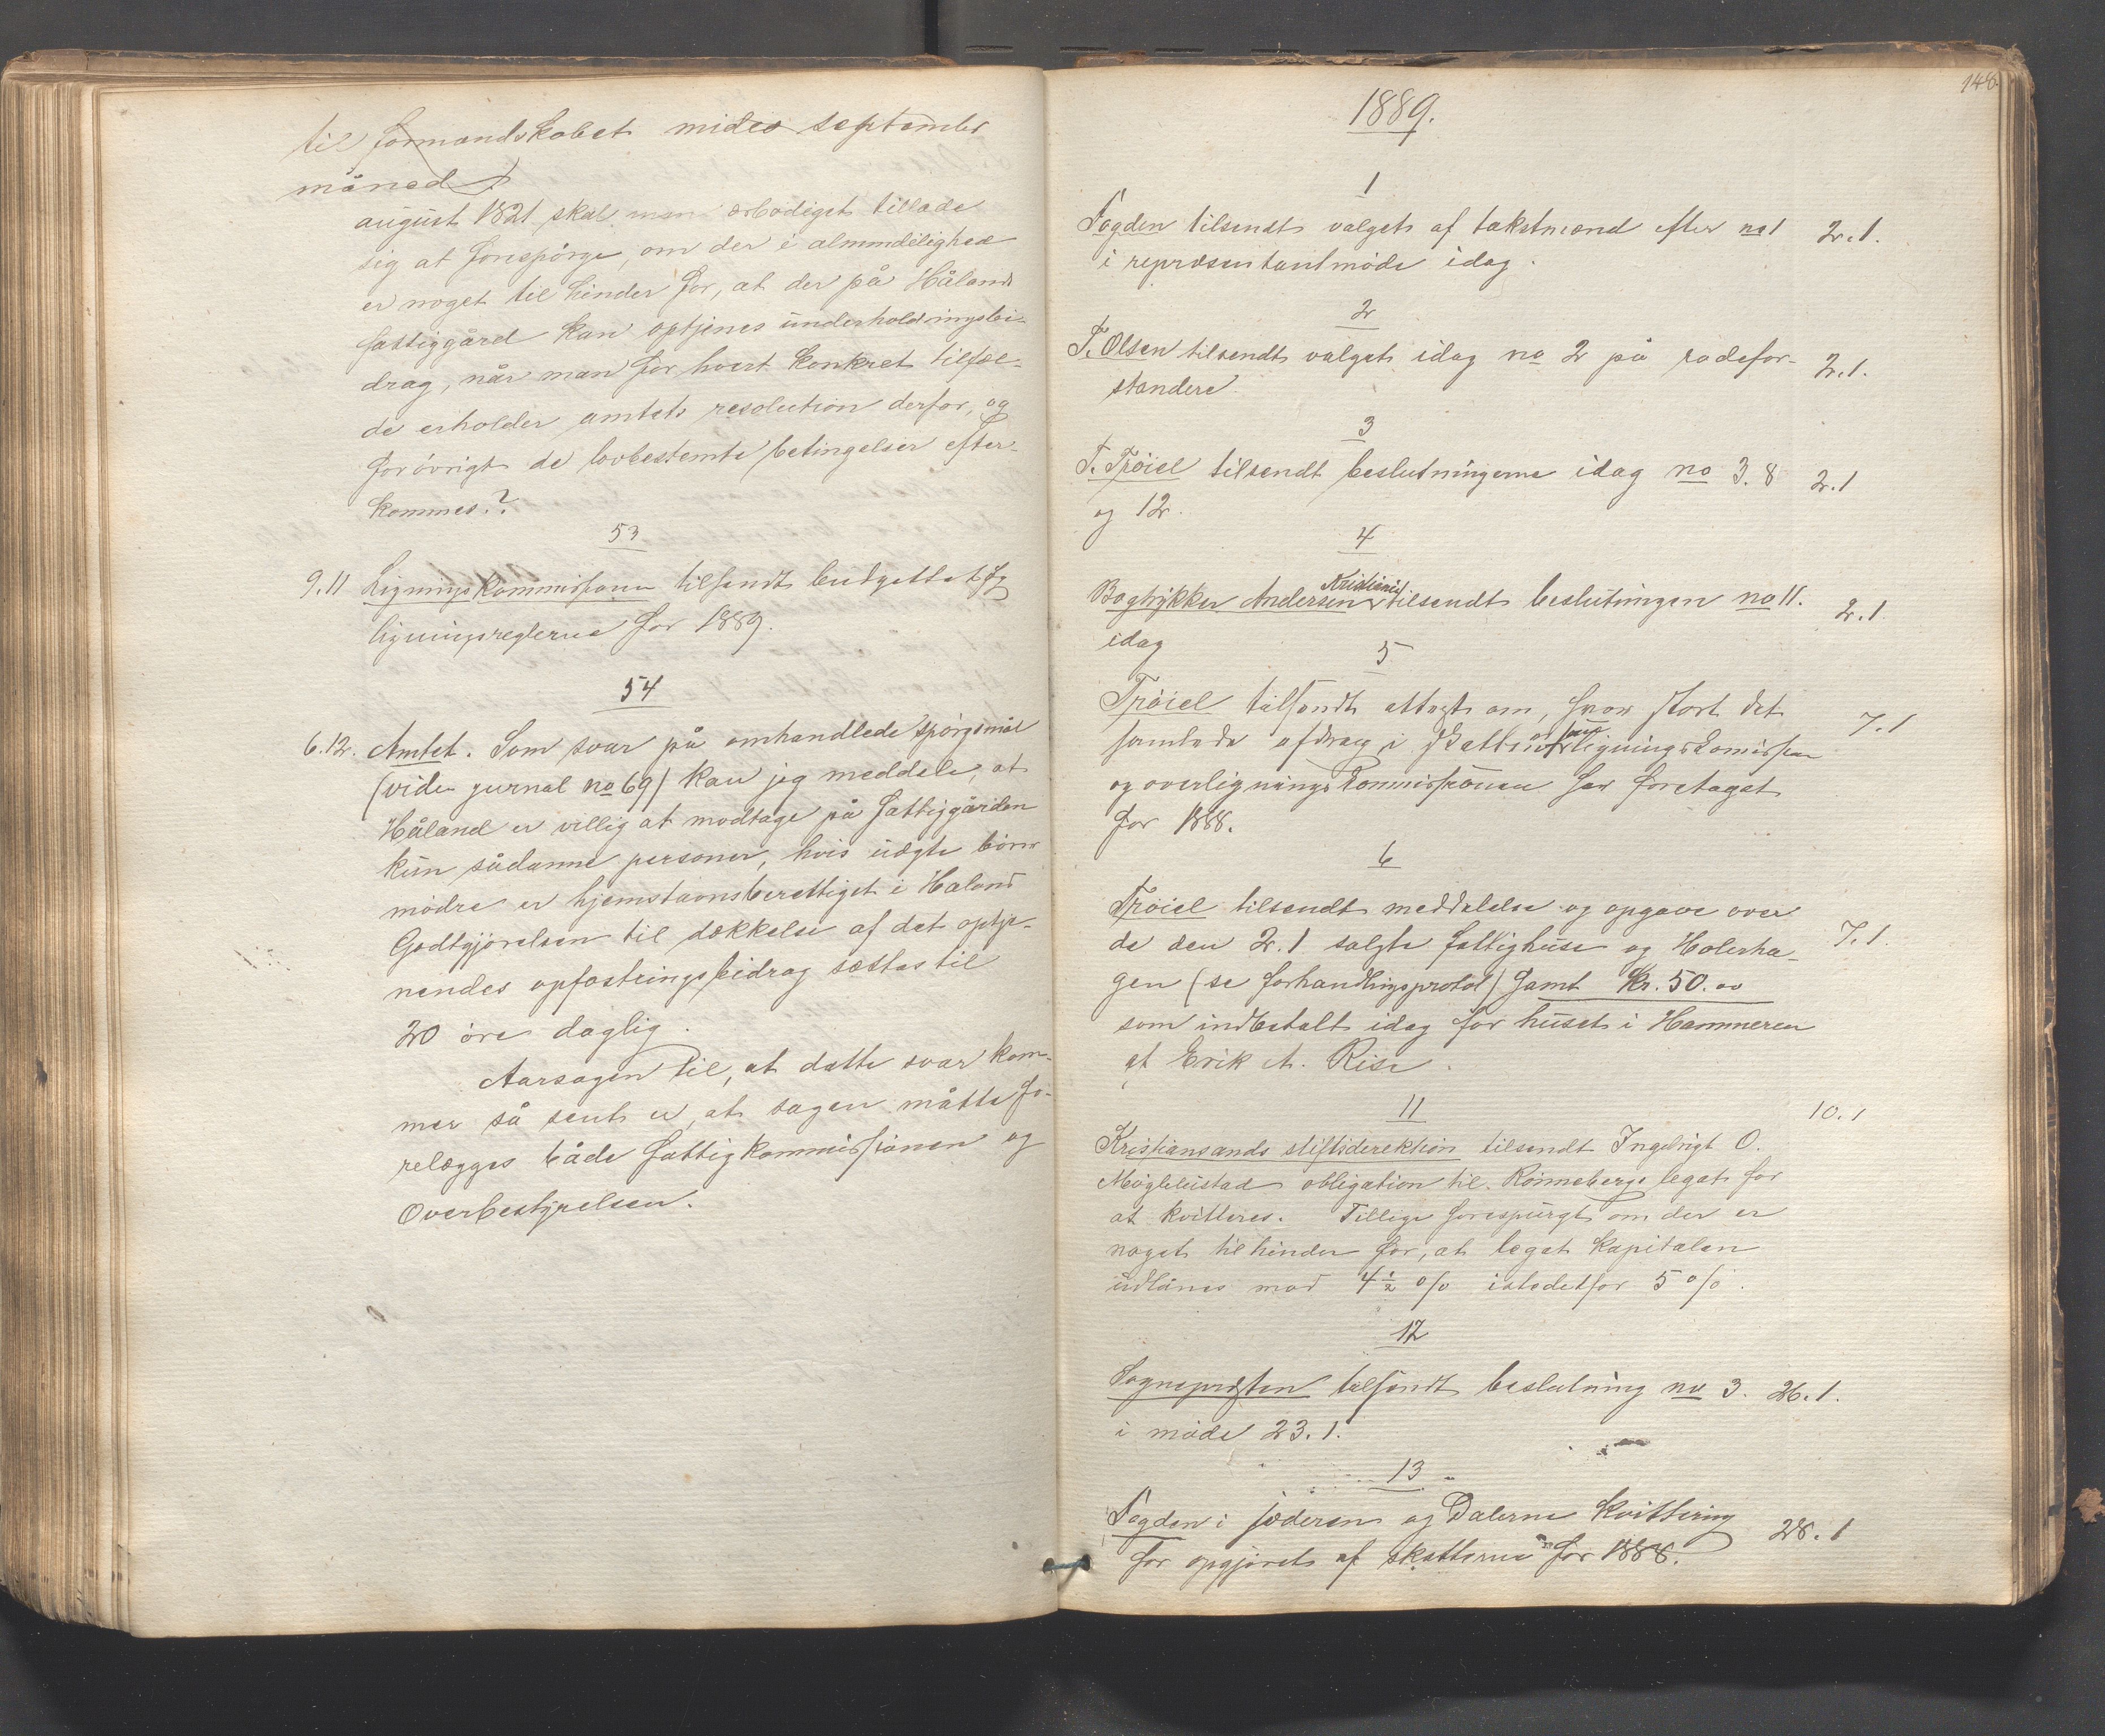 til formandskabet medio september
måned
august 1821 skal man ærbødigst tillade
sig at forespörge, om der i almindelighed
er noget til hinder for, at der på Hålands
fattiggård kan optjenes underholdningsbi-
drag, når man for hvert konkret tilfæl-
de erholder amtets resolution derfor, og
forövrigt de lovbestemte betingelser efter-
kommes??
53
9.11 Ligningskommissionen tilsendt budgettet og
ligningsreglerne for 1889.
54
6.12. Amtet. Som svar på omhandlede spörgsmål
(vide jurnal no 69) kan jeg meddele, at
Håland er villig at modtage på fattiggården
kun sådanne personer, hvis uægte börns
mödre er hjemstavnsberettiget i Haland
Godtgjörelsen til dækkelse af det optje-
nendes opfostringsbidrag sættes til
20 öre daglig.
Aarsagen til, at dette svar kom-
mer så sent er, at sagen måtte fo-
relægges både fattigkommissionen og
Overbestyrelsen.
148
1889.
1
Fogden tilsendt valget af takstmænd efter no 1 2.1.
i repræsentantmöde idag.
2
T. Olsen tilsendt valget idag no 2 på rodefor- 2.1.
standere
3
T. Tröiel tilsendt beslutningerne idag no 3. 8 2.1
og 12.
4
Kristiania
Bogtrykker Andersen tilsendt beslutningen no 11. 2.1
idag
5
Tröiel tilsendt attest om, hvor stort det
samlede afdrag i skatten som ligningskomission 7.1
og overligningskommissionen har foretaget
for 1888.
6
Tröiel tilsendt meddelelse og opgave over
de den 2.1 solgte fattighuse og Holerha- 7.1.
gen (se forhandlingsprotol) samt Kr. 50.00
som indbetalt idag for huset i Hammeren
af Erik A. Rise.
11 10.1
Kristiansands stiftsderektion tilsendt Ingebrigt O.
Möglebustad obligation til Rönnebergs legat for
at kvitteres. Tillige forespurgt om der er
noget til hinder for, at legat kapitalen
udlånes mod 4½ % istedetfor 5 %.
12
Sognepresten tilsendt beslutning no 3. 26.1.
i möde 23.1.
13
Fogden i jæderen og Dalerne kvittering 28.1
for opgjöret af skatterne for 1888.